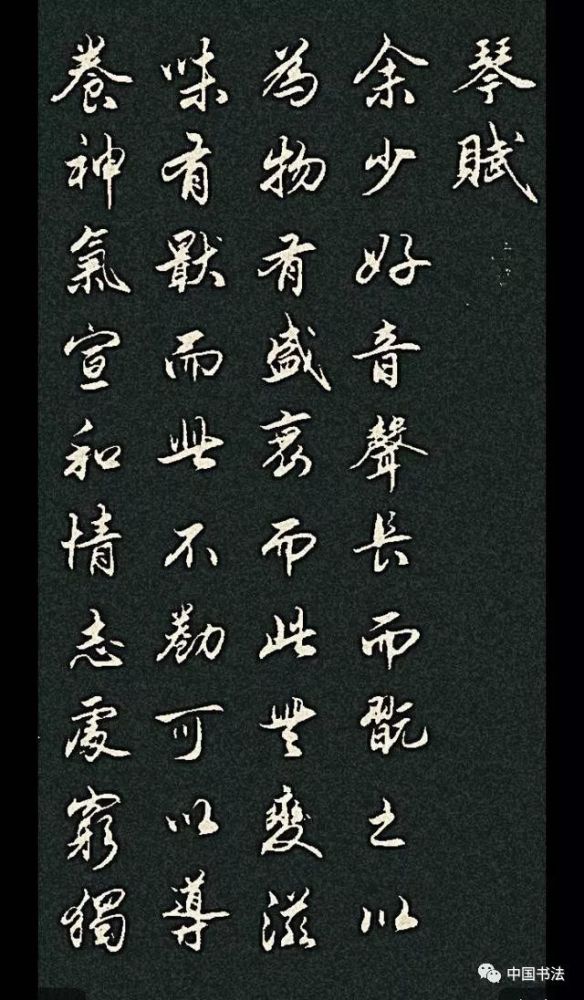 琴賦
余少好音聲長而翫之以
為物有盛衰而此無變滋
味有猒而此不勌可以導
養神氣宣和情志處窮獨
中国书法